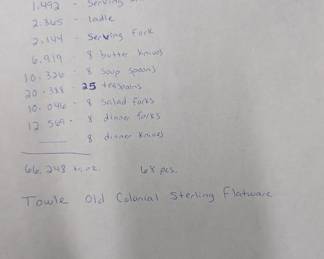 1.492 - Serving
2.365 - ladle
2.144 - Serving Fork
6.919 - 8 butter knives
10.326 - 8 soup spoons
20.388 - 25 teaspoons
10.046 - 8 salad forks
12.569 - 8 dinner forks
8 dinner knives
66.248 68 pcs.
Towle Old Colonial Sterling Flatware